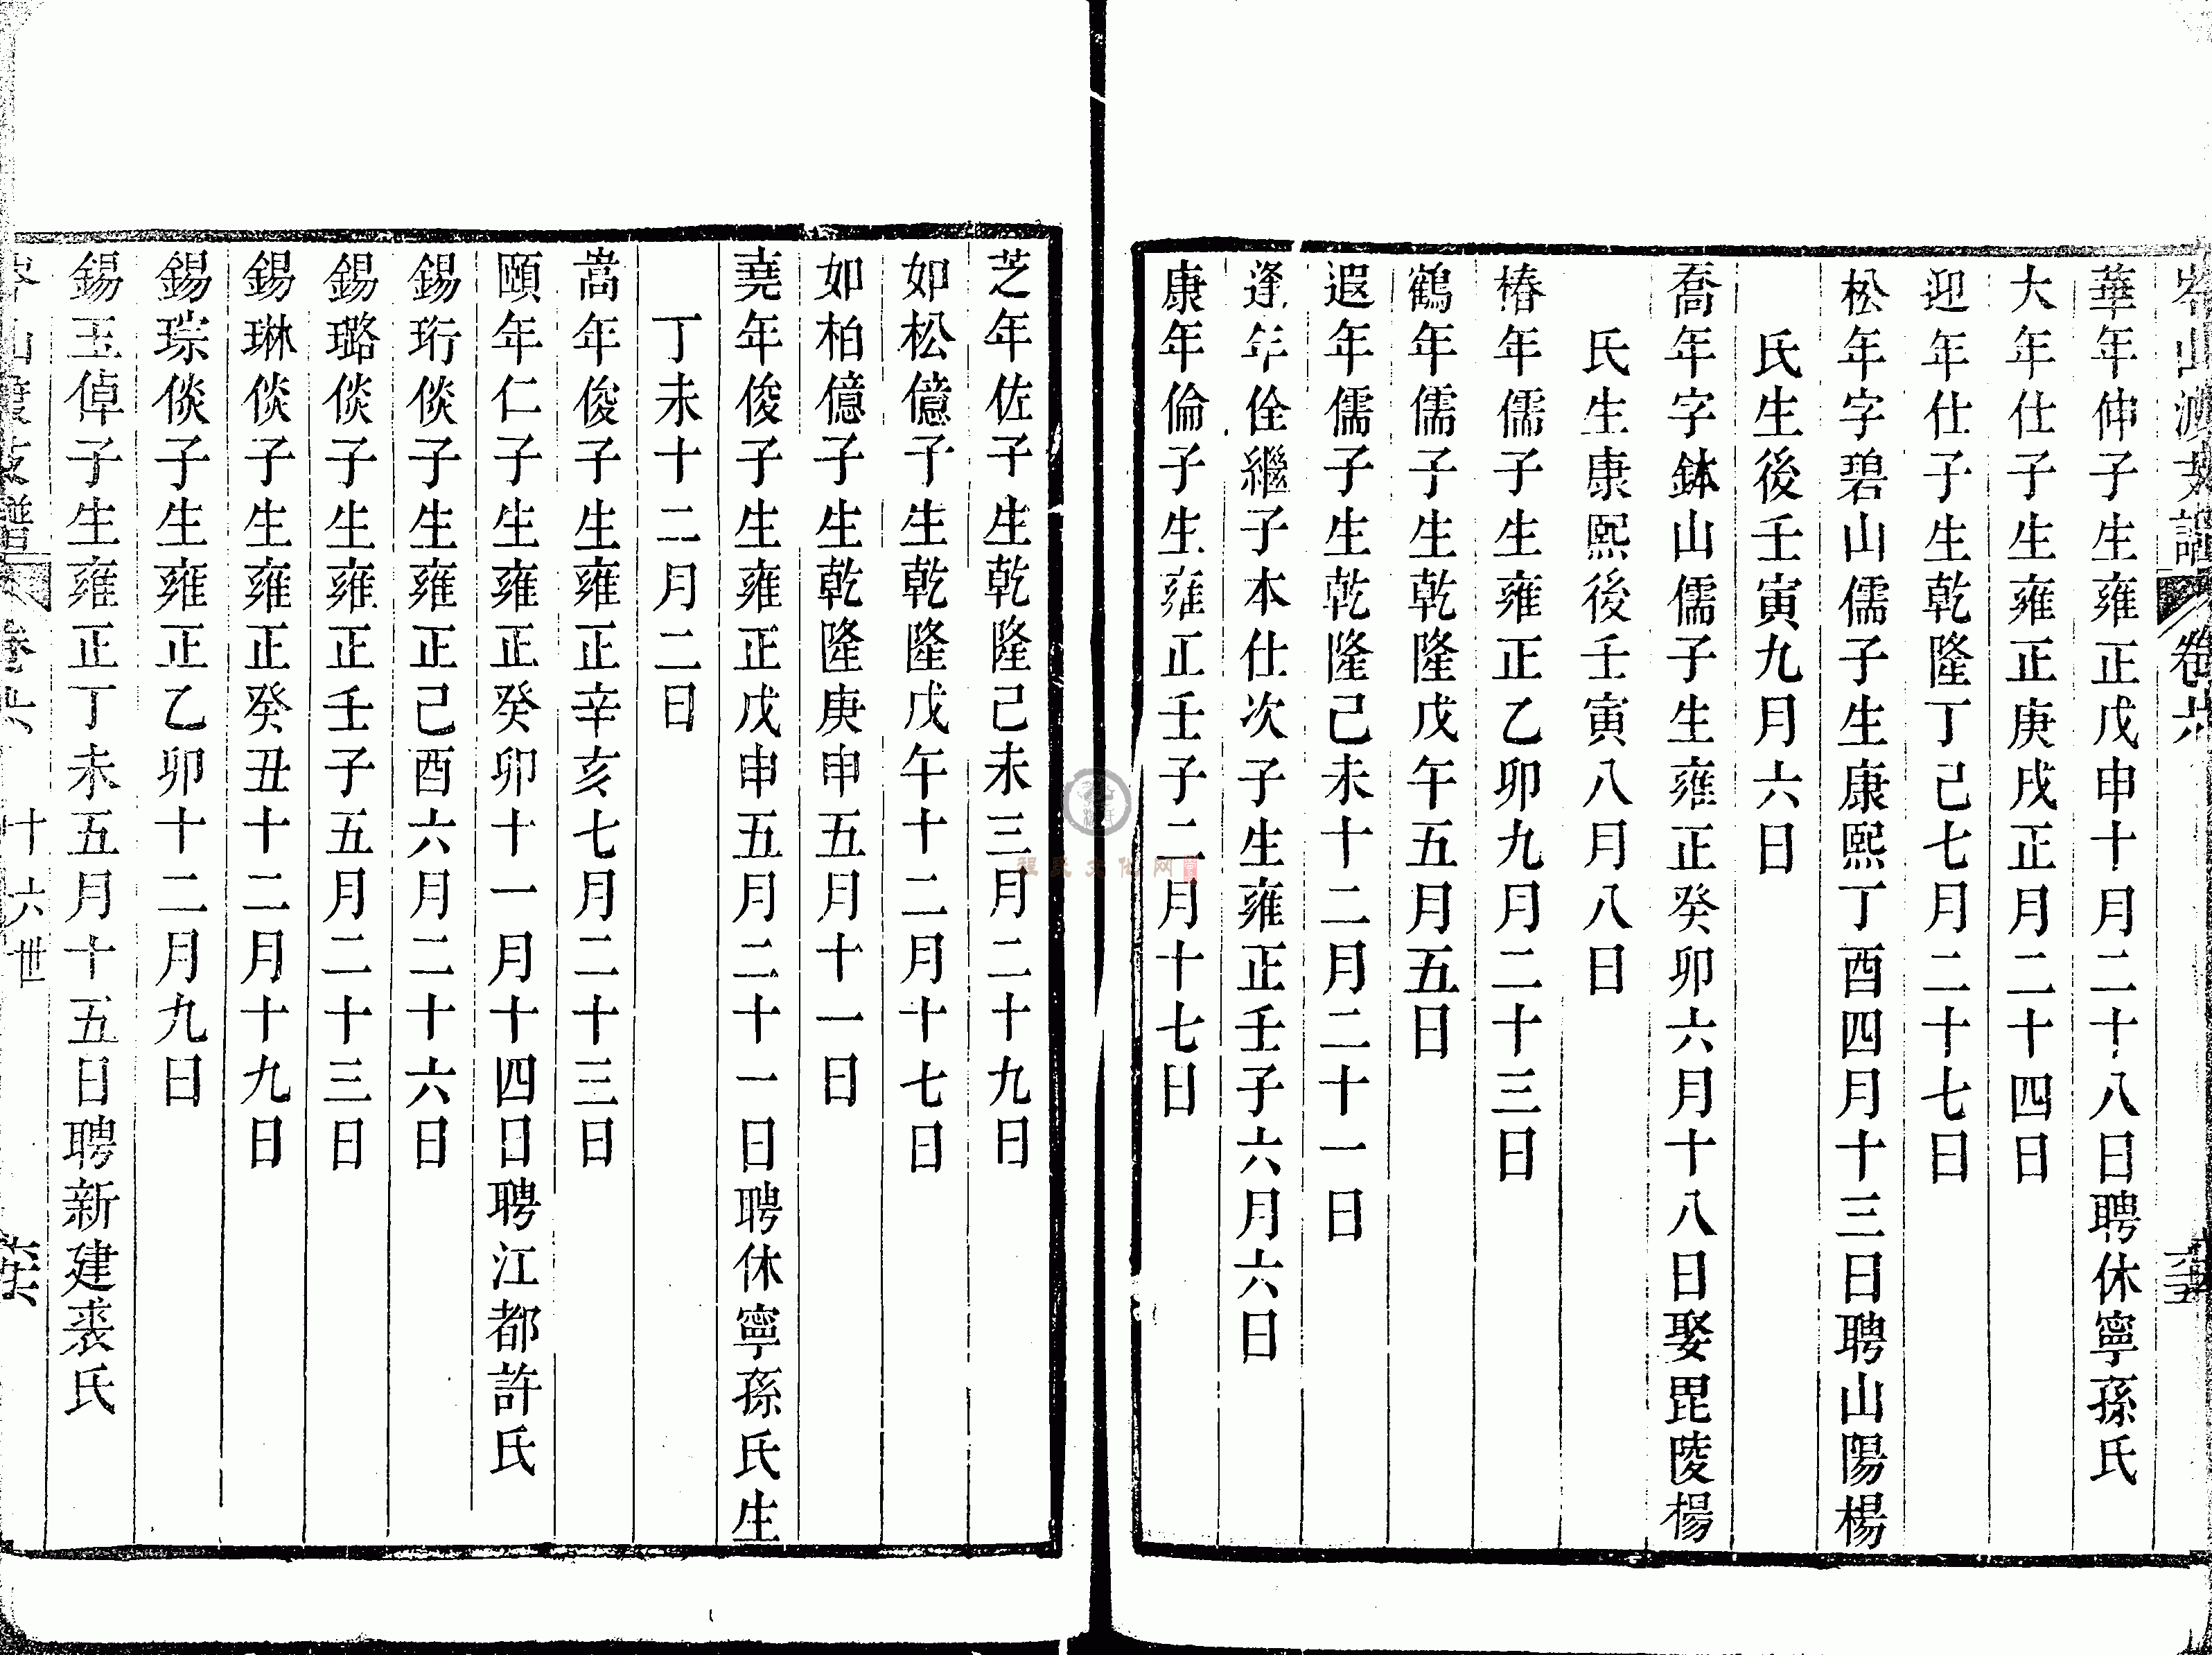 岑山渡支譜 卷六
華年伸子生雍正戊申十月二十八日聘休寧孫氏
大年仕子生雍正庚戌正月二十四日
迎年仕子生乾隆丁己七月二十七日
松年字碧山儒子生康熙丁酉四月十三日聘山陽楊
氏生後壬寅九月六日
喬年字鉢山儒子生雍正癸卯六月十八日娶毘陵楊
氏生康熙後壬寅八月八日
椿年儒子生雍正乙卯九月二十三日
鶴年儒子生乾隆戊午五月五日
遐年儒子生乾隆己未十二月二十一日
逢年佺繼子本仕次子生雍正壬子六月六日
康年倫子生雍正壬子二月十七日
芝年佐子生乾隆己未三月二十九日
如松億子生乾隆戊午十二月十七日
如柏億子生乾隆庚申五月十一日
堯年俊子生雍正戊申五月二十一日聘休寧孫氏生
丁未十二月二日
嵩年俊子生雍正辛亥七月二十三日
頤年仁子生雍正癸卯十一月十四日聘江都許氏
錫珩倓子生雍正己酉六月二十六日
錫璐倓子生雍正壬子五月二十三日
錫琳倓子生雍正癸丑十二月十九日
錫琮倓子生雍正乙卯十二月九日
錫玉倬子生雍正丁未五月十五日聘新建裘氏
山渡支譜 卷六 十六世
程氏文化网